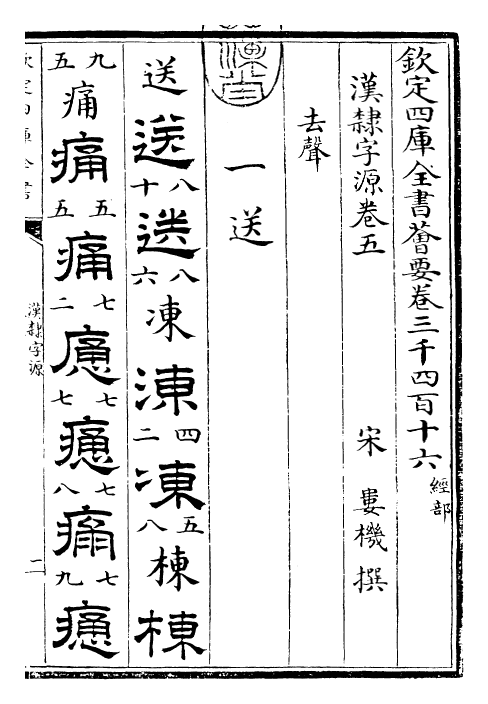 欽定四庫全書薈要卷三千四百十六 經部
漢隸字源卷五 宋 婁機撰
去聲
一送
送 送 八十 送 八六 凍 涷 四二 凍 五八 棟 棟
九五 痛 痛 五五 痛 七二 㾯 七七 㾯 七八 痛 七九 㾯
漢隸字源
二